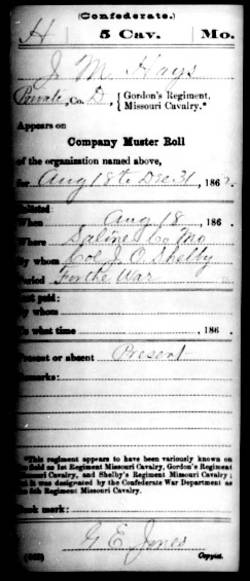 (Confederate.)
H 5 Cav. Mo.
J. M. Hays
Private, Co. D, { Gordon's Regiment, Missouri Cavalry.*
Appears on
Company Muster Roll
of the organization named above,
for Aug 18 to Dec 31, 1862.
Enlisted:
When Aug 18, 186 .
Where Saline Co Mo
By whom Col J. O. Shelby
Period For the War
Last paid:
By whom
To what time , 186 .
Present or absent Present
Remarks:
*This regiment appears to have been variously known on
the field as 1st Regiment Missouri Cavalry, Gordon's Regiment
Missouri Cavalry, and Shelby's Regiment Missouri Cavalry;
but it was designated by the Confederate War Department as
the 5th Regiment Missouri Cavalry.
Book mark:
G. E. Jones
Copyist.